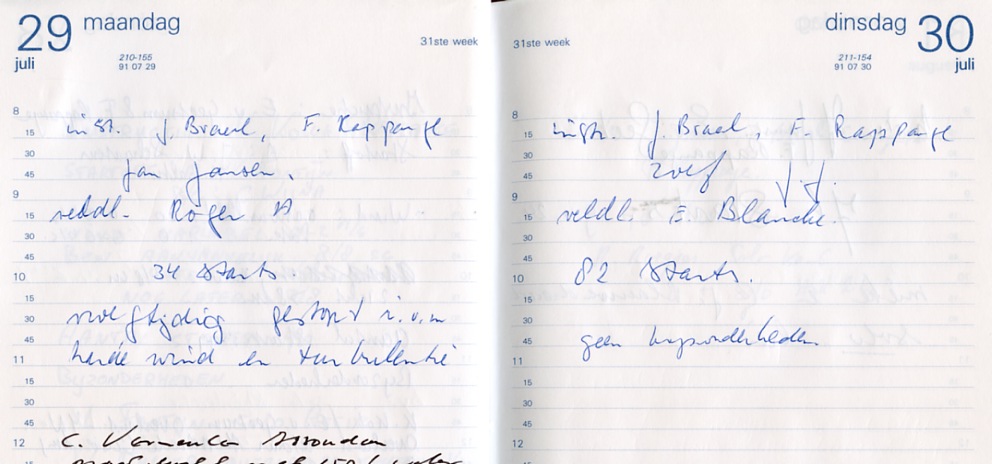 29 maandag
juli
210-155
91 07 29
31ste week
8
inst. J. Braed, F. Kappange
15
30
Jan Jansen.
45
9
veldl. Roger A
15
30
45
34 starts.
10
15
vroegtijdig gestopt i.v.m
30
45
harde wind en turbulentie
11
15
30
45
12
C. Vermeulen
15
31ste week
dinsdag 30
juli
211-154
91 07 30
8
instr. J. Braed, F. Rappange
15
30
45
9
veldl. E. Blanche.
15
30
45
82 starts.
10
15
30
45
geen bijzonderheden
11
15
30
45
12